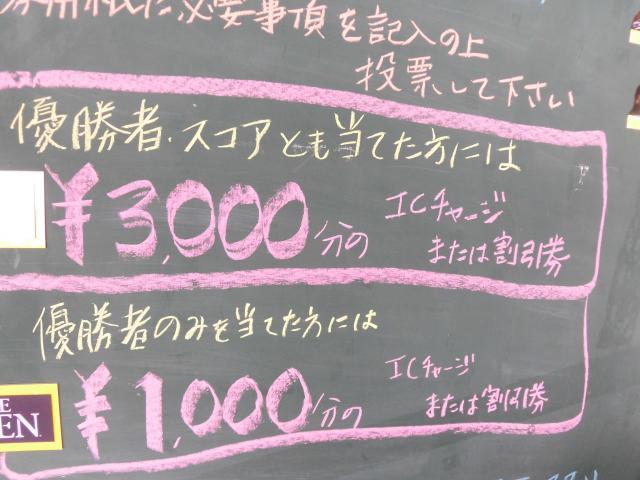 必要事項を記入の上
投票して下さい
優勝者・スコアとも当てた方には
¥3,000分の
ICチャージ
または割引券
優勝者のみを当てた方には
¥1,000分の
ICチャージ
または割引券
EN